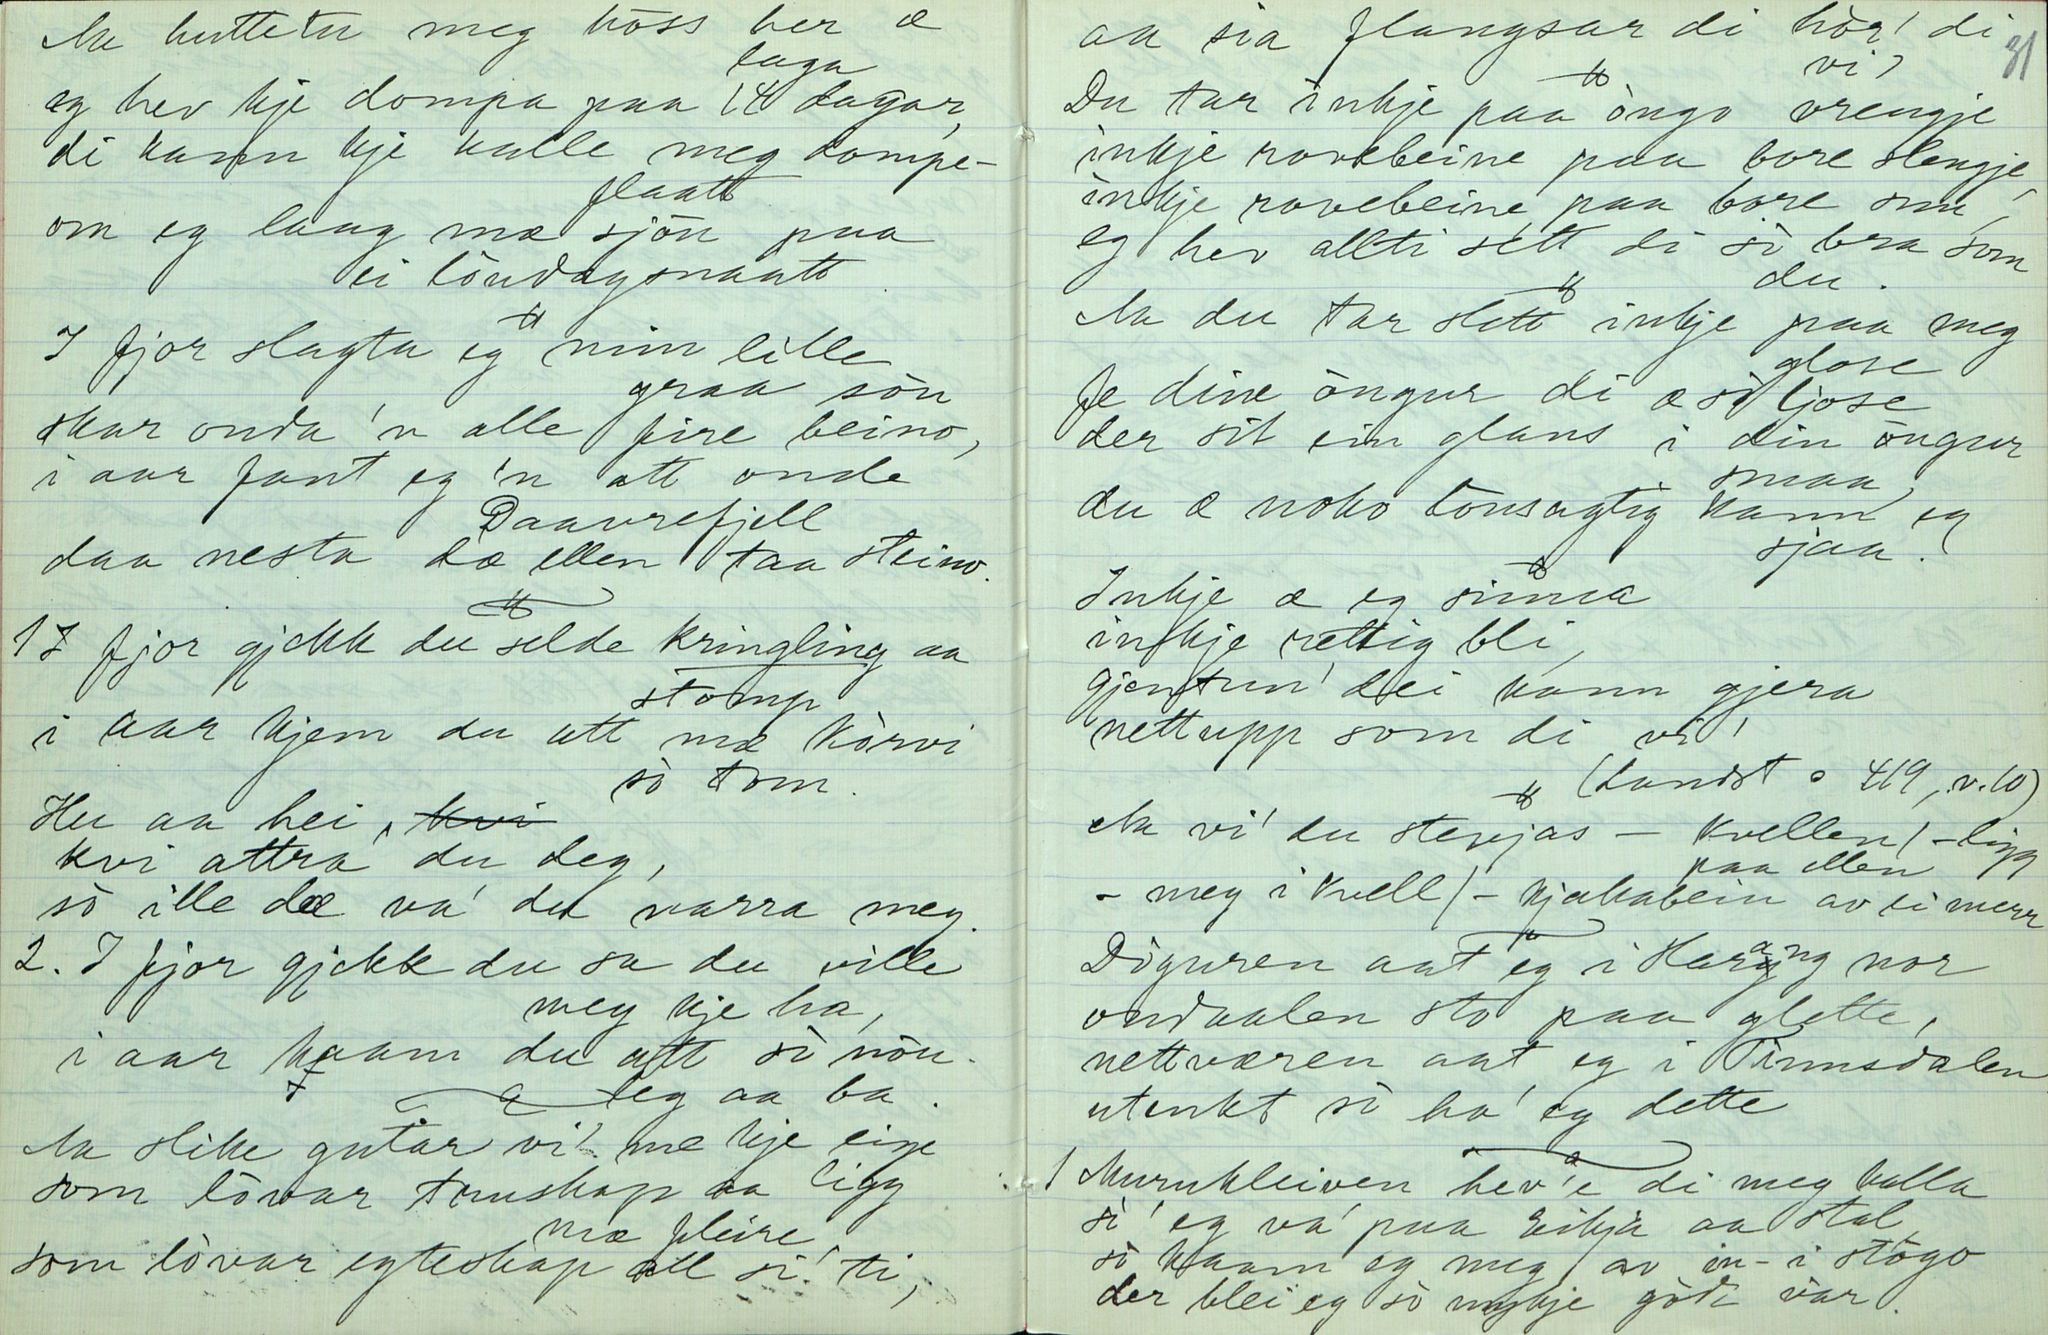 Aa huttetu meg höss her æ
laga
eg hev kje dompa paa 14 dagar,
di kann kje kalle meg dompe-
flaatt
om eg laag mæ sjön paa
ei löudagsnaatt.
I fjor slagta eg min lille
graa sön
skar onda 'n alle fire beino,
i aar fant eg 'n att onde
Daavrefjell
daa nesta dæ ellen taa steino.
1 I fjor gjekk du selde kringling aa
stomp
i aar kjem du att mæ körvi
sò tom.
Hu aa hei, kvi
kvi attra' du deg,
sò ille dæ va' du narra meg.
2. I fjor gjekk du sa du ville
meg kje ha,
i aar kaam du att sò nöu-
leg aa ba.
Aa slike gutar vi' me kje eige
som lòvar truskap aa ligg
mæ fleire
som lòvar egteskap all si' ti,
aa sia flangsar di hòr' di
vi'
31
Du tar inkje paa öngo vrengje
inkje rovebeine paa bore slengje,
inkje rovebeine paa bore snu,
eg hev allti sett di sò bra som
du.
Aa du tar slett inkje paa meg
glose
Fe dine öngur di æ sò ljose
der sit ein glans i din öngur
smaa,
du æ noko tonsagtig kann eg
sjaa!
Inkje æ eg sinna
inkje rettig bli,
gjentun' dei kann gjera
nettupp som di vi'
(Landst s 419, v. 10)
Aa vi' du stevjas – kvellen / – ligg
paa ellen
– meg i kvell / – kjakabein av ei merr
Döguren aat eg i Haraing nor
ondaalen sto paa glette,
nettværen aat eg i Tinnsdalen
utenkt sò ha' eg dette
1 Murukleiven hev'e di meg kalla
si' eg va' paa eikja aa stal
sò kaam eg meg av in- i stògo
der blei eg sò mykje gòdt var.